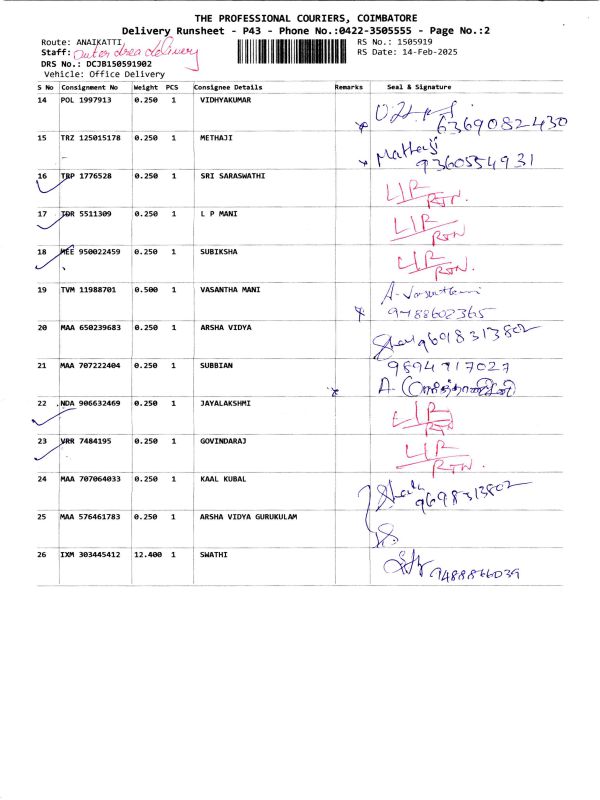 THE PROFESSIONAL COURIERS, COIMBATORE
Delivery Runsheet - P43 - Phone No.:0422-3505555 - Page No.:2
Route: ANAIKATTI
RS No.: 1505919
Staff: Outer Area delivery
RS Date: 14-Feb-2025
DRS No.: DCJB150591902
Vehicle: Office Delivery
S No Consignment No Weight PCS Consignee Details Remarks Seal & Signature
14 POL 1997913 0.250 1 VIDHYAKUMAR
6369082430
15 TRZ 125015178 0.250 1 METHAJI
9360554931
16 TRP 1776528 0.250 1 SRI SARASWATHI L/R
RTN.
17 TDR 5511309 0.250 1 L P MANI L/R
RTN.
18 MEE 950022459 0.250 1 SUBIKSHA L/R
RTN.
19 TVM 11988701 0.500 1 VASANTHA MANI
9488602365
20 MAA 650239683 0.250 1 ARSHA VIDYA 9698313802
21 MAA 707222404 0.250 1 SUBBIAN 9894717027
22 NDA 906632469 0.250 1 JAYALAKSHMI L/R
RTN
23 VRR 7484195 0.250 1 GOVINDARAJ L/R
RTN.
24 MAA 707064033 0.250 1 KAAL KUBAL
9698313802
25 MAA 576461783 0.250 1 ARSHA VIDYA GURUKULAM
26 IXM 303445412 12.400 1 SWATHI
9488866039